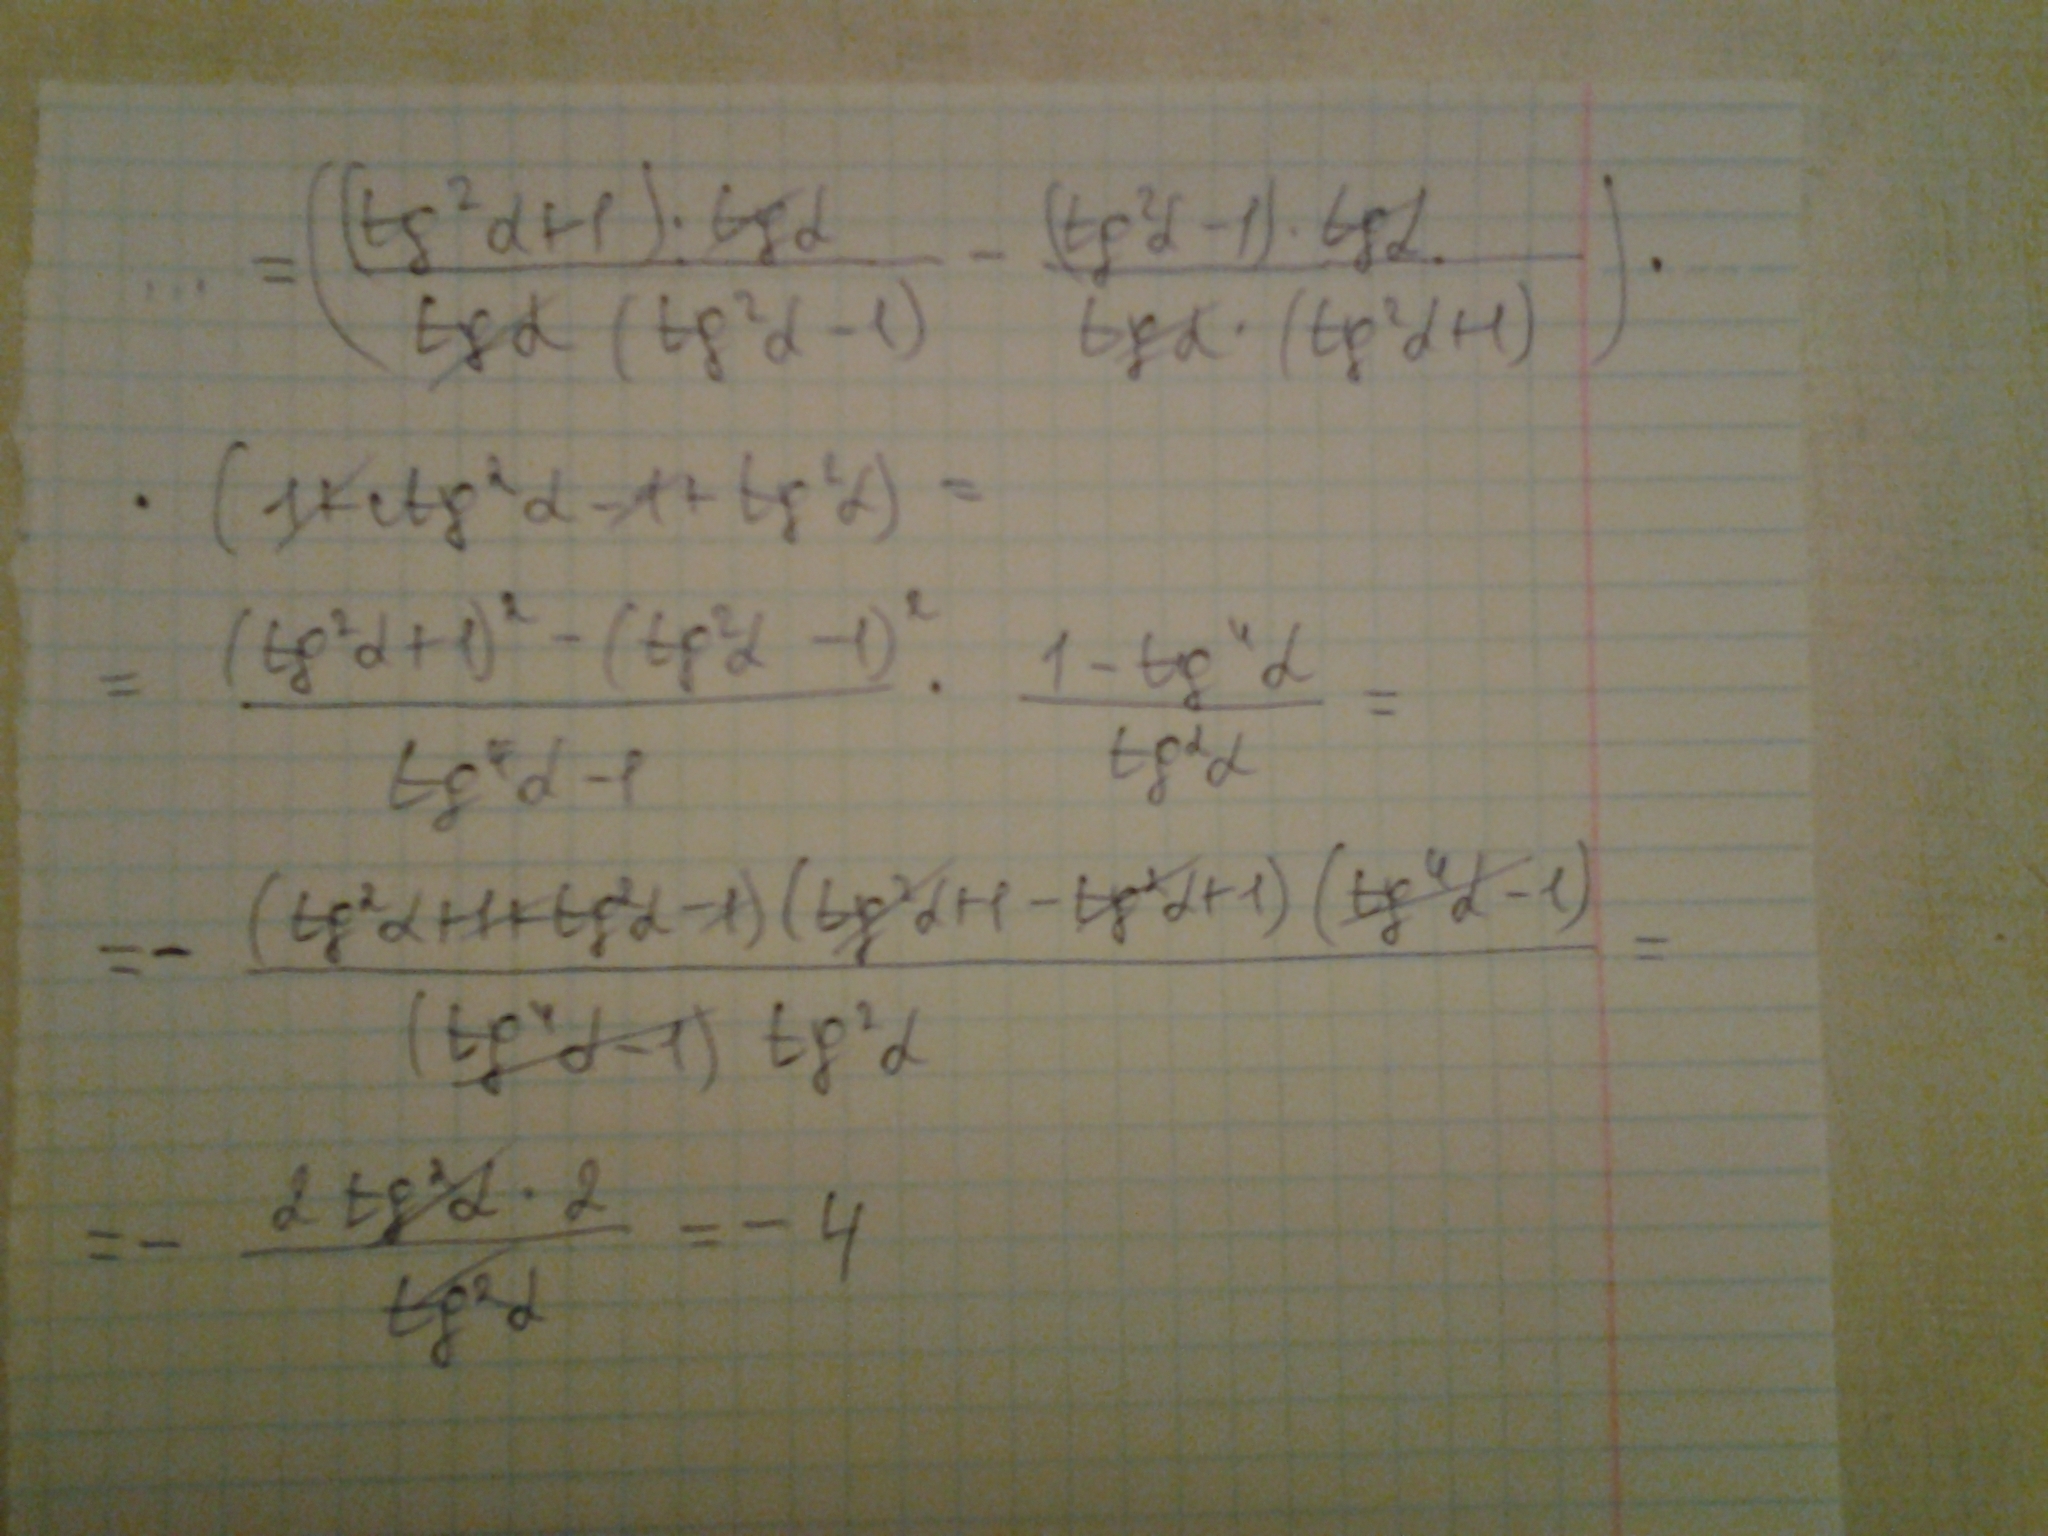 ... = ( (tg²α+1)·tgα / tgα (tg²α-1) - (tg²α-1)·tgα / tgα·(tg²α+1) ) ·
· (1+ctg²α-1+tg²α) =
= (tg²α+1)² - (tg²α-1)² / tg⁴α-1 · 1-tg⁴α / tg²α =
= - (tg²α+1+tg²α-1)(tg²α+1-tg²α+1)(tg⁴α-1) / (tg⁴α-1) tg²α =
= - 2 tg²α · 2 / tg²α = - 4